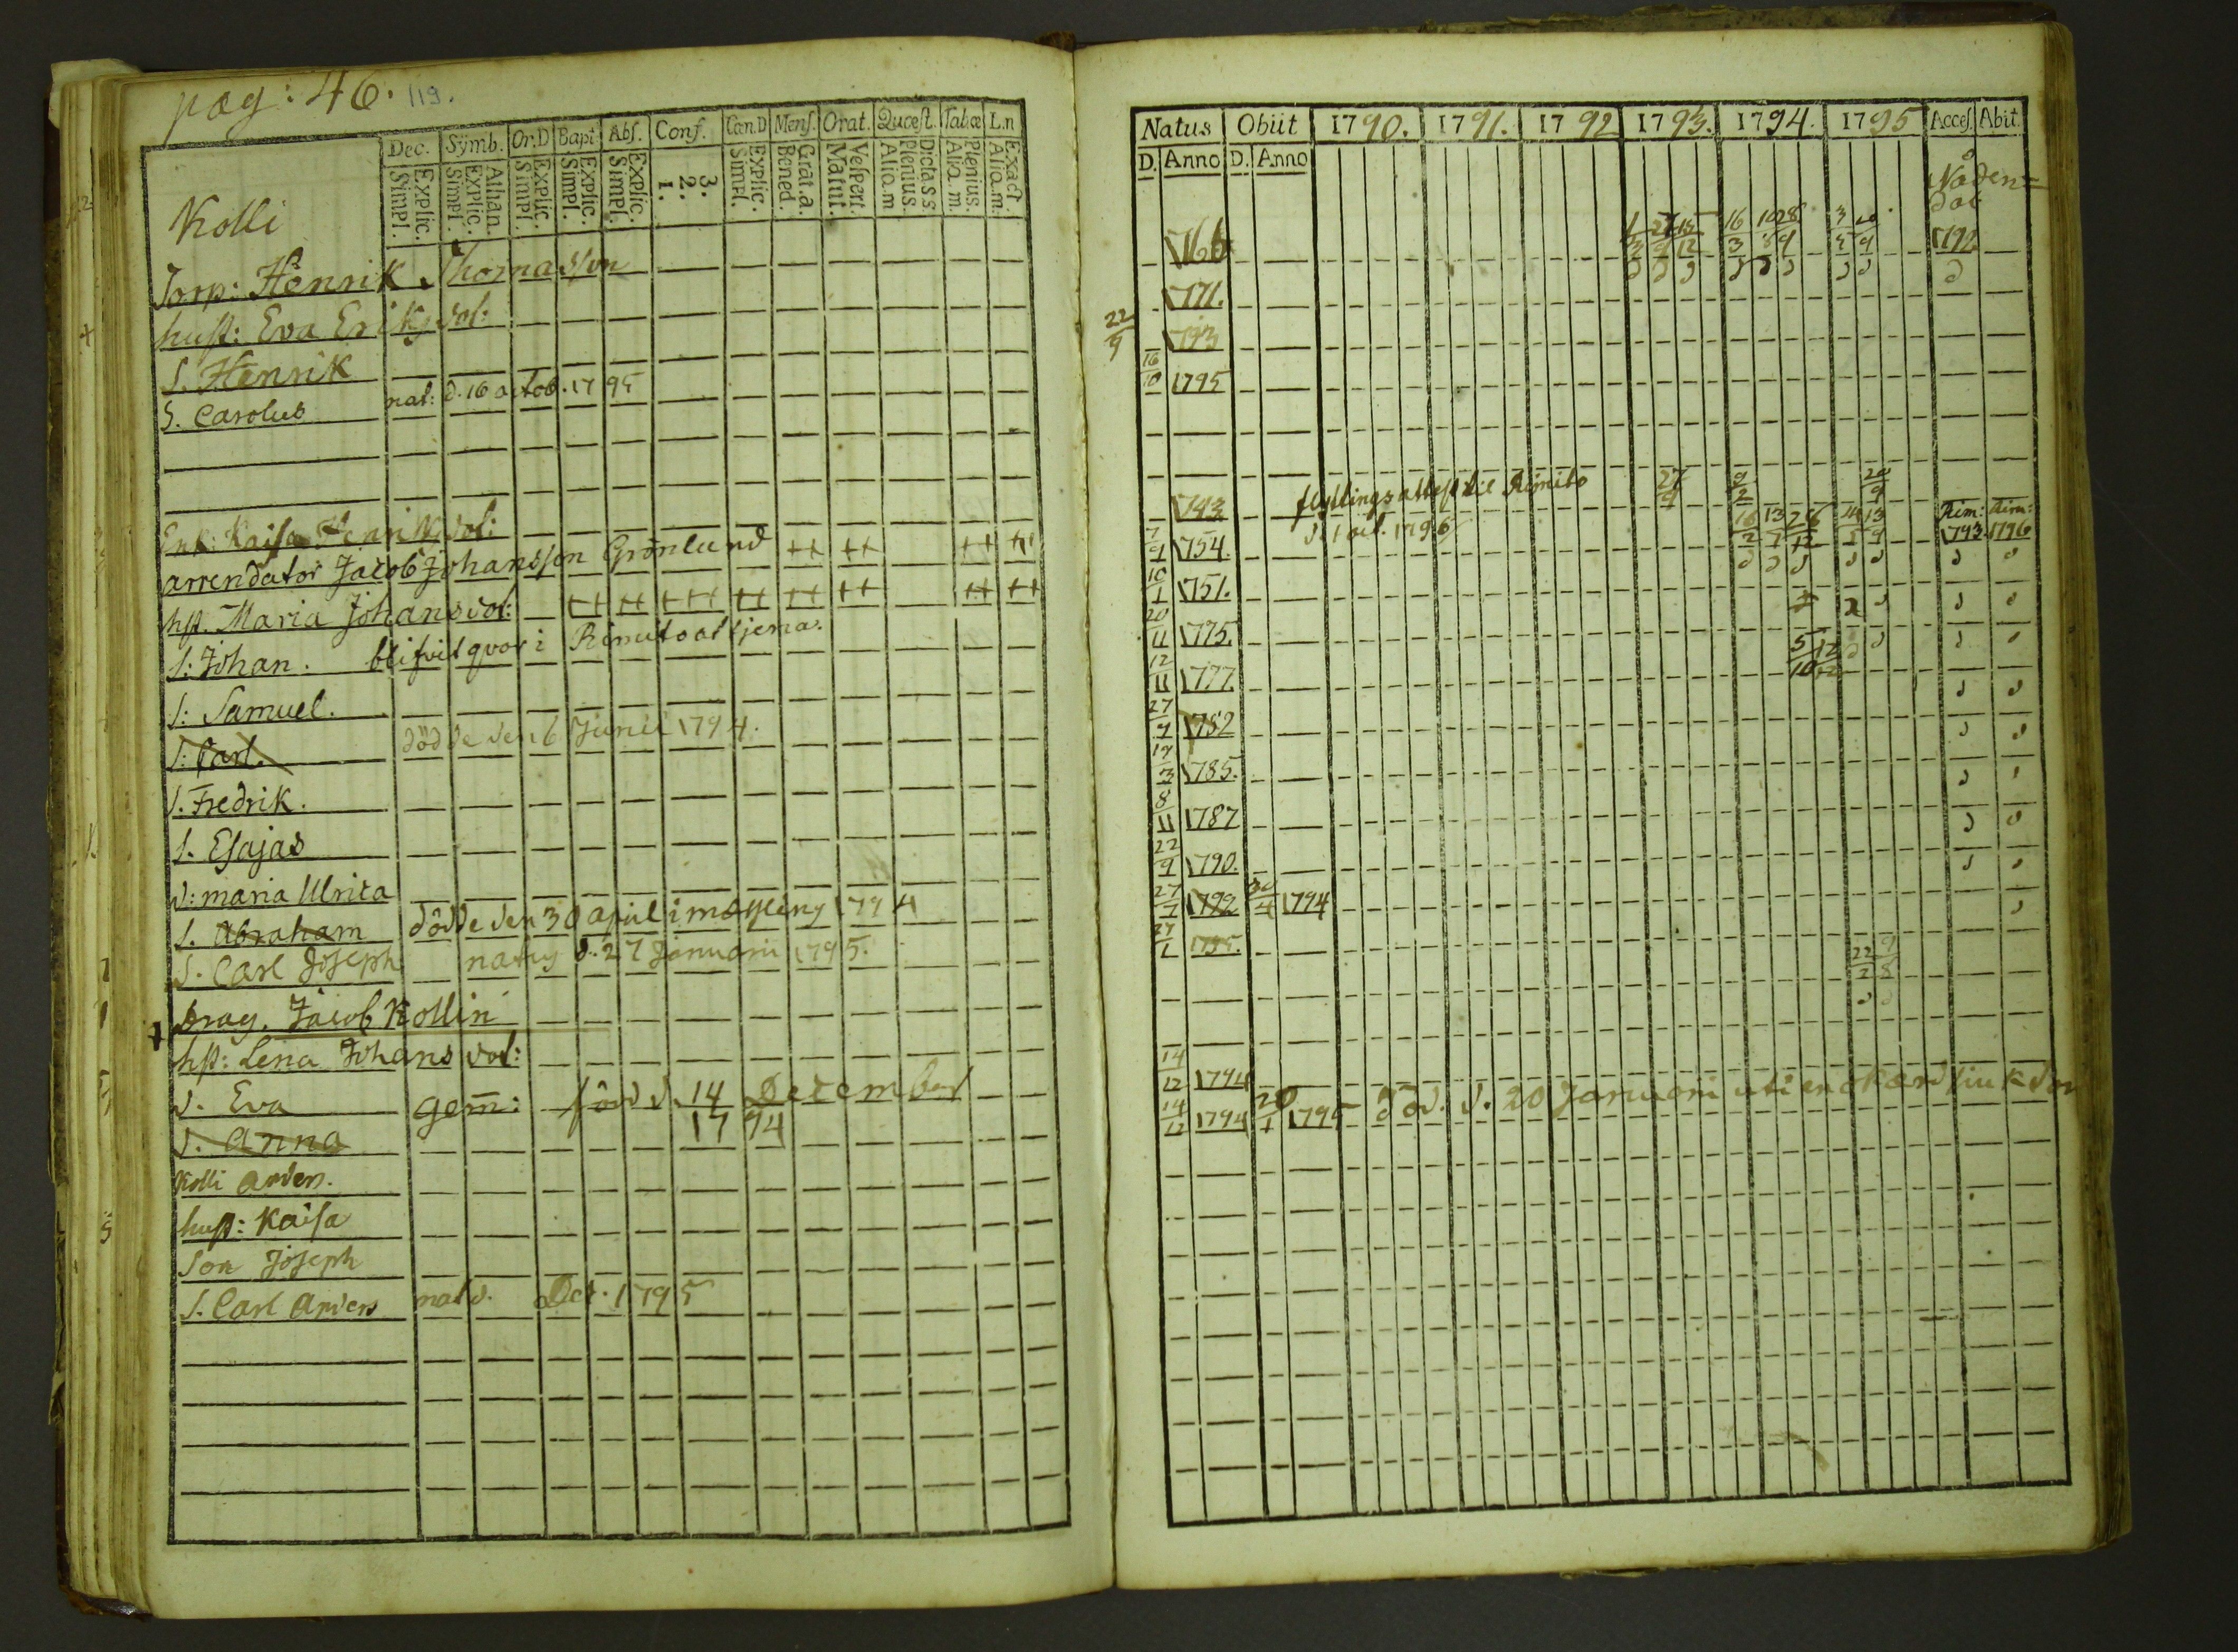 pag: 46. 119.
Dec. Sÿmb. Or.D Bapt Abs. Conf. Cœn.D Mens. Orat. Quæst. Tabæ L.n
Explic. Simpl. Athan. Explic. Simpl. Explic. Simpl. Explic. Simpl. Explic. Simpl. 3. 2. 1. Explic. Simpl. Grat.a. Bened. Vespert. Matut. Dicta S S Plenius. Alia.m Plenius. Alia.m. Exact Alia.m.
Kolli
Torp: Henrik Thomasson
hust: Eva Eriksdot:
S. Henrik
S. Carolus nat: d. 16 octob. 1795
Enk: Kaisa Henriksdot:
arrendator Jacob Johansson Grönlund ++ ++ ++ ++
hst. Maria Johansdot: ++ ++ +++ ++ ++ ++ ++ ++
S: Johan. blifvit qvar i Rimito at tjena.
S: Samuel.
S: Carl. dödde den 6 Junii 1794.
S. Fredrik.
S. Esajas
d: maria Ulrica
S. Abraham dödde den 30 april i mässling 1794
S. Carl Joseph natus d. 27 Januarii 1795.
Drag. Jacob Kollin
hst: Lena Johansdot:
d. Eva gem: född d. 14 December
d. Anna 1794
Kolli Anders.
hust: Kaisa
Son Joseph
S. Carl Anders nat d. Oct. 1795
Natus Obiit 1790. 1791. 1792 1793. 1794. 1795 Acces. Abit.
D. Anno D. Anno
Nåden=
dal
1766 1/3 27/9 15/12 16/3 3/3 1792
1771.
22/9 1793
16/10 1795
1743 flyttings attest til Rimito 27/9 9/2 20/9
7/9 1754. d. 1 oct. 1796 16/2 Rim: 1793. Rim: 1796
10/1 1751.
20/11 1775.
12/11 1777. 5/10
27/9 1782
17/3 1785.
8/11 1787
22/9 1790.
27/7 1792 30/4 1794
27/1 1795.
22/2 9/8
14/12 1794
14/12 1794 20/1 1795 död. d. 20 Januari uti en okänd siukdom